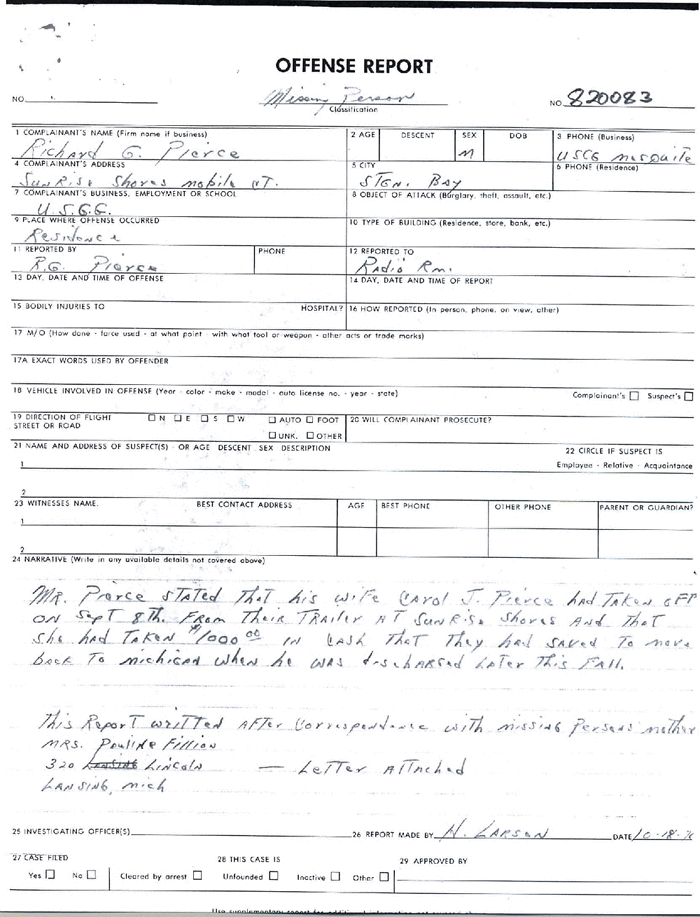 OFFENSE REPORT
NO.
Missing Person
Classification
NO. 820083
1 COMPLAINANT'S NAME (Firm name if business)
2 AGE DESCENT SEX DOB
3 PHONE (Business)
Richard G. Pierce
M
USCG Mesquite
4 COMPLAINANT'S ADDRESS
5 CITY
6 PHONE (Residence)
SunRise Shores mobile CT.
STGN. BAY
7 COMPLAINANT'S BUSINESS, EMPLOYMENT OR SCHOOL
8 OBJECT OF ATTACK (Burglary, theft, assault, etc.)
U.S.C.G.
9 PLACE WHERE OFFENSE OCCURRED
10 TYPE OF BUILDING (Residence, store, bank, etc.)
Residence
11 REPORTED BY
PHONE
12 REPORTED TO
R.G. Pierce
Radio Rm.
13 DAY, DATE AND TIME OF OFFENSE
14 DAY, DATE AND TIME OF REPORT
15 BODILY INJURIES TO
HOSPITAL?
16 HOW REPORTED (In person, phone, on view, other)
17 M/O (How done - force used - at what point - with what tool or weapon - other acts or trade marks)
17A EXACT WORDS USED BY OFFENDER
18 VEHICLE INVOLVED IN OFFENSE (Year - color - make - model - auto license no. - year - state)
Complainant's ☐ Suspect's ☐
19 DIRECTION OF FLIGHT ☐ N ☐ E ☐ S ☐ W ☐ AUTO ☐ FOOT
20 WILL COMPLAINANT PROSECUTE?
STREET OR ROAD ☐ UNK. ☐ OTHER
21 NAME AND ADDRESS OF SUSPECT(S) - OR AGE DESCENT SEX DESCRIPTION
22 CIRCLE IF SUSPECT IS
1
Employee - Relative - Acquaintance
2
23 WITNESSES NAME. BEST CONTACT ADDRESS AGE BEST PHONE OTHER PHONE PARENT OR GUARDIAN?
1
2
24 NARRATIVE (Write in any available details not covered above)
MR. Pierce stated that his wife Carol J. Pierce had taken off
on Sept 8th. From Their Trailer at SunRise Shores and that
she had taken $1000.00 in cash that they had saved to move
back to michigan when he was discharged later this Fall.
This Report written after correspondence with missing persons mother
MRS. Pauline Fillion
320 Lansing Lincoln — Letter Attached
Lansing, Mich
25 INVESTIGATING OFFICER(S)
26 REPORT MADE BY H. LARSON DATE 10-18-
27 CASE FILED
28 THIS CASE IS
29 APPROVED BY
Yes ☐ No ☐ Cleared by arrest ☐ Unfounded ☐ Inactive ☐ Other ☐